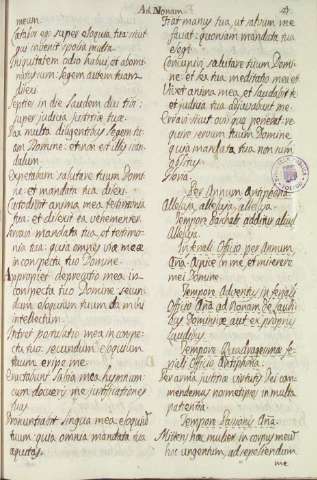 Ad Nonam.
meum.
Lætabor ego super eloquia tua: sicut
qui invenit spolia multa.
Iniquitatem odio habui, et abomi-
natus sum: legem autem tuam
dilexi.
Septies in die laudem dixi tibi:
super judicia justitiæ tuæ.
Pax multa diligentibus legem tu-
am Domine: et non est illis scan-
dalum.
Expectabam salutare tuum Domi-
ne: et mandata tua dilexi.
Custodivit anima mea testimonia
tua: et dilexit ea vehementer.
Servavi mandata tua, et testimo-
nia tua: quia omnes viæ meæ
in conspectu tuo Domine.
Appropinquet deprecatio mea in
conspectu tuo Domine: secun-
dum eloquium tuum da mihi
intellectum.
Intret postulatio mea in conspe-
ctu tuo: secundum eloquium
tuum eripe me.
Eructabunt labia mea hymnum:
cum docueris me justificationes
tuas.
Pronuntiabit lingua mea eloquiũ
tuum: quia omnia mandata tua
æquitas.
Fiat manus tua, ut salvum me
faciat: quoniam mandata tua
elegi.
Concupivi salutare tuum Domi-
ne: et lex tua meditatio mea est.
Vivet anima mea, et laudabit te:
et judicia tua adjuvabunt me.
Erravi sicut ovis quæ periit:
quære servum tuum Domine
quia mandata tua non sum
oblitus.
Gloria.
Per Annum Antiphona.
Alleluia, alleluia, alleluia.
Tempore Paschali additur aliud
Alleluia.
In feriali Officio per Annum
Ana. Aspice in me, et miserere
mei Domine.
Tempore Adventus in feriali
Officio Ana. ad Nonam de Laudi-
bus Dominicæ aut ex propriis
laudibus.
Tempore Quadragesimæ fe-
riali Officio Antiphona.
Per arma justitiæ virtutis Dei com-
mendemus nosmetipsos in multa
patientia.
Tempore Passionis Ana.
Mittens hæc mulier in corpus meũ
hoc unguentum, ad sepeliendum
me